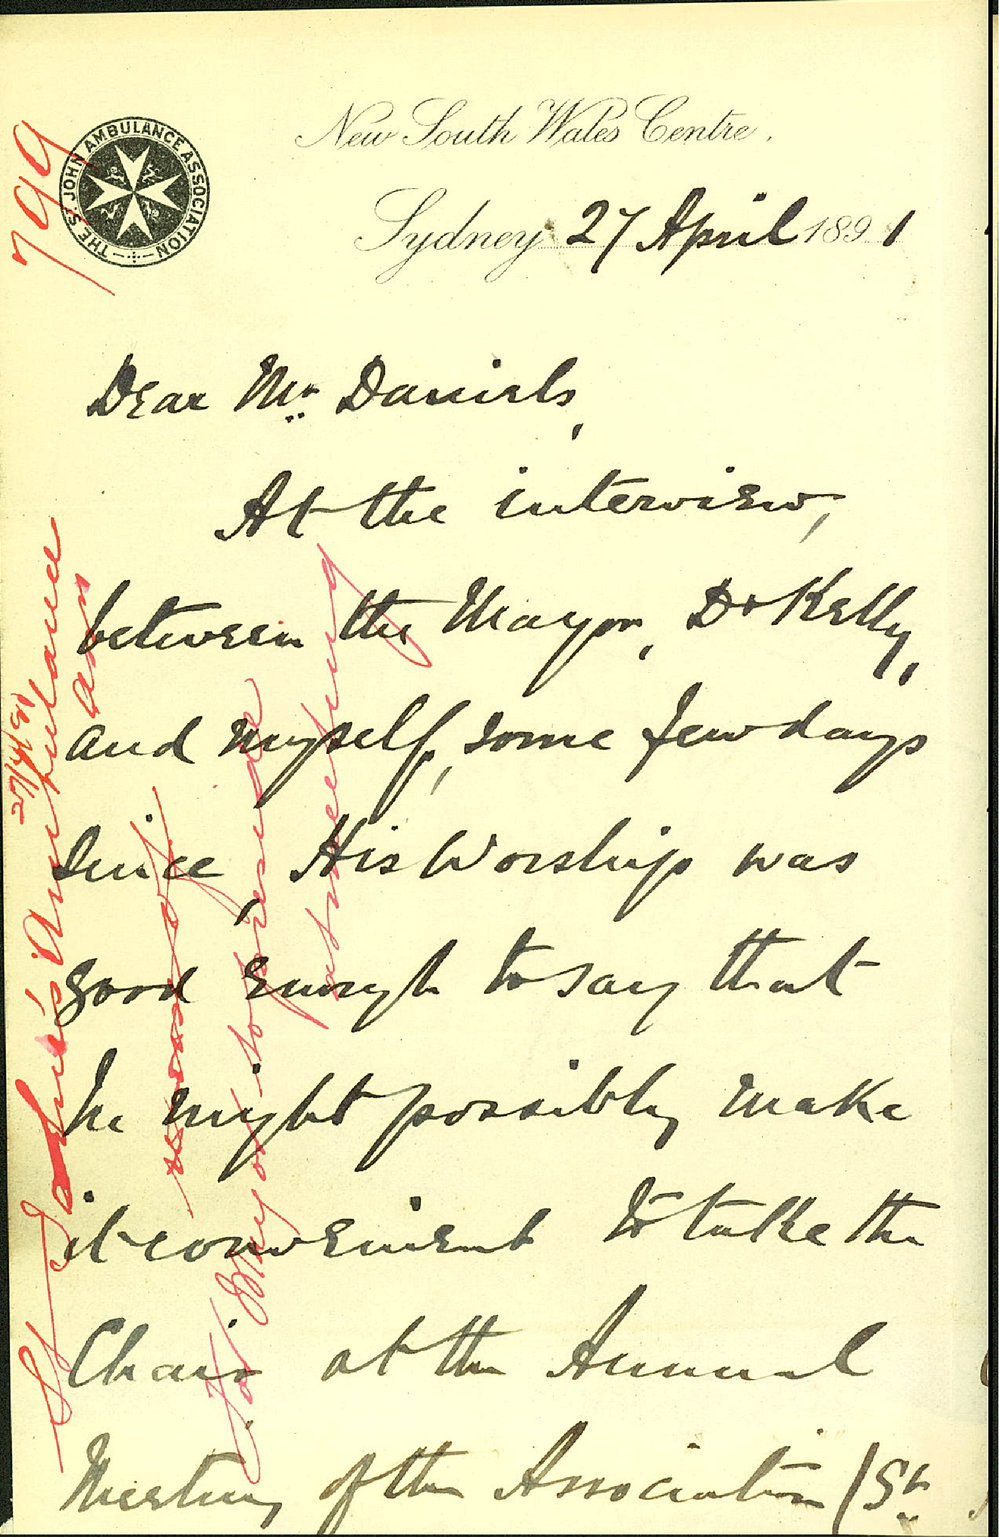 THE ST. JOHN AMBULANCE ASSOCIATION
New South Wales Centre.
Sydney 27 April 1891
799
Dear Mr. Daniels,
At the interview,
between the Mayor, Dr Kelly,
and myself, some few days
since, His Worship was
good enough to say that
he might possibly make
it convenient to take the
Chair at the Annual
Meeting of the Association (St
St John's Ambulance
27/4/91
Assn
For Mayor to preside
at meeting